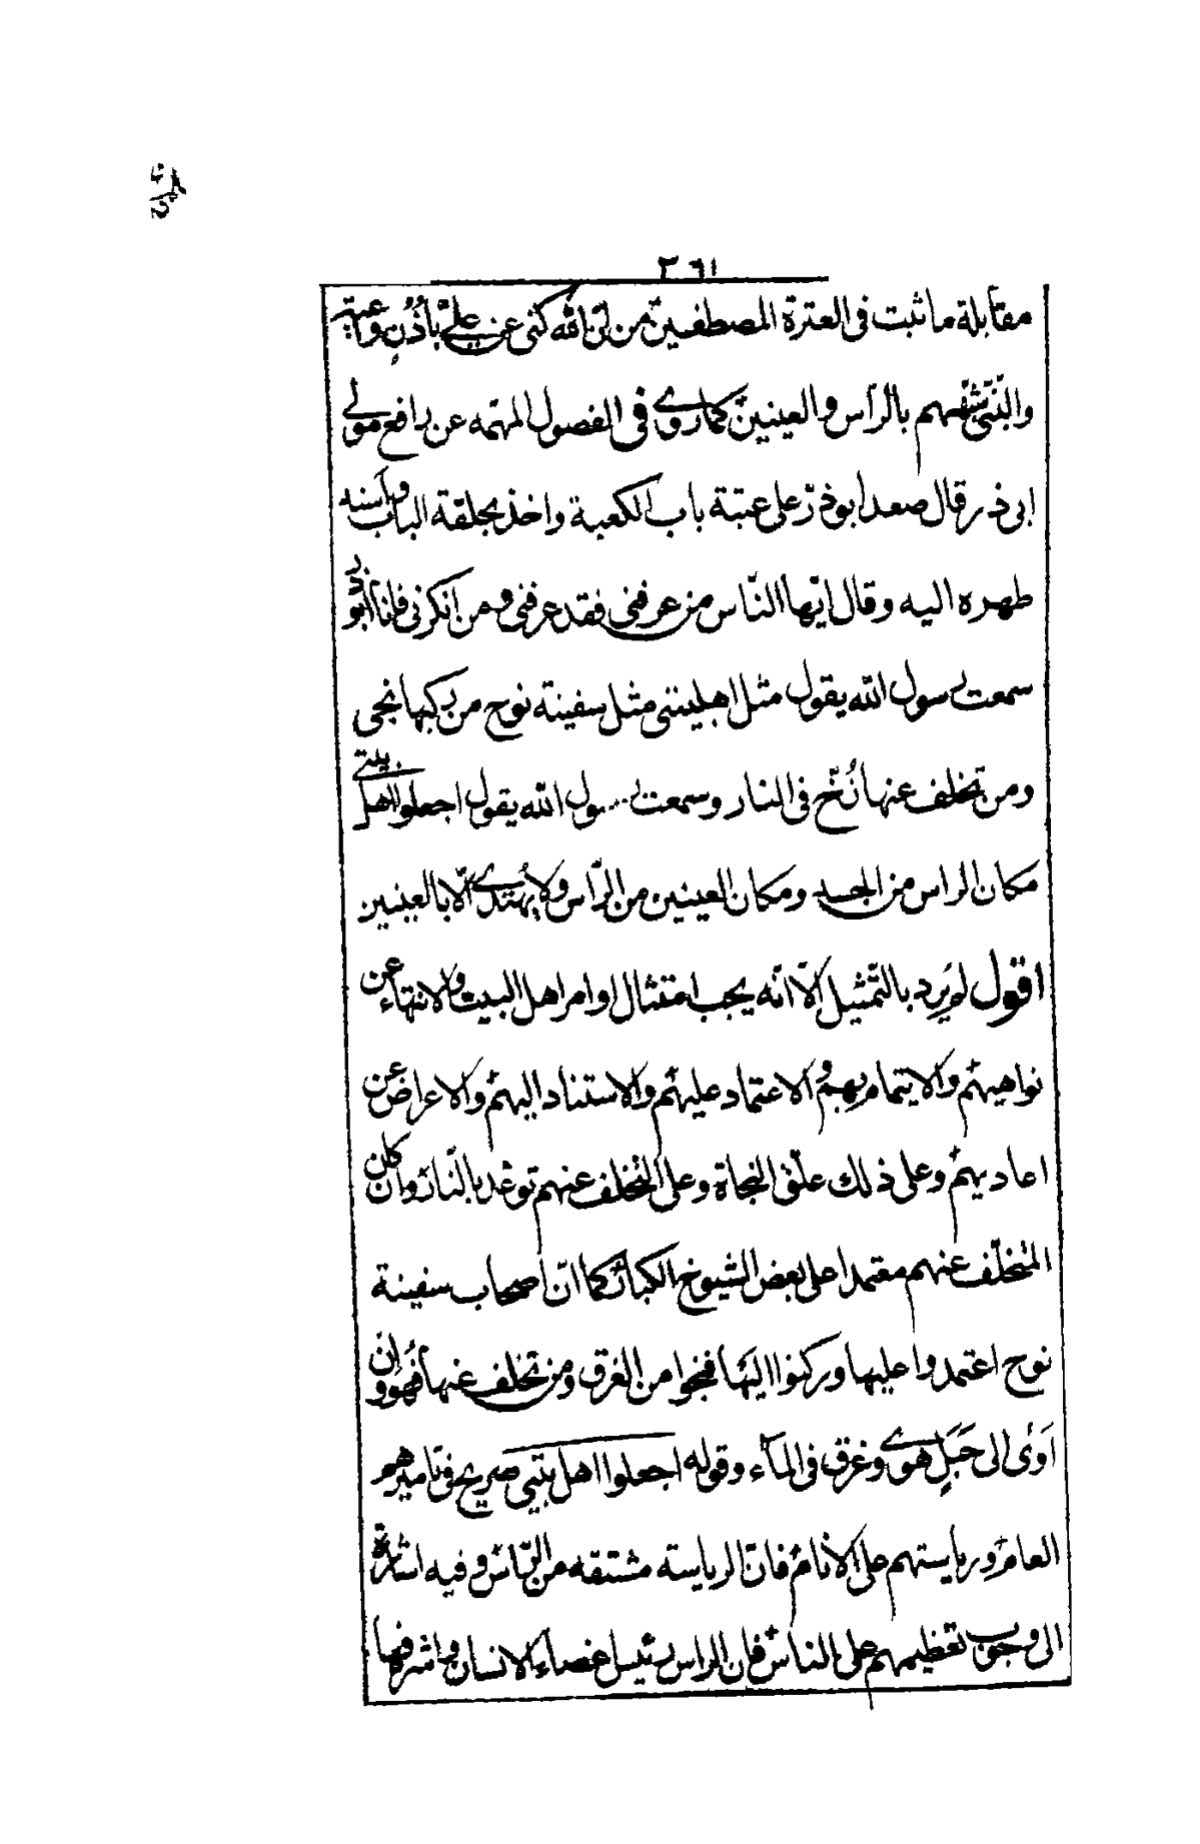 ٣٦١
مقابلة ما ثبت فى العترة المصطفين من انّ الله كنى عن علىّ باُذُنٍ وعية
والنبى شبّههم بالرّاس والعينين كما روى فى الفصول المهمّه عن رافع مولى
ابى ذر قال صعد ابوذرّ على عتبة باب الكعبة واخذ بحلقة الباب واسند
ظهره اليه وقال ايّها النّاس من عرفنى فقد عرفنى ومن انكرنى فانا ابوذر
سمعت رسول الله يقول مثل اهلبيتى مثل سفينة نوح من ركبها نجى
ومن تخلف عنها زُخّ فى النار وسمعت رسول الله يقول اجعلوا اهل بيتى
مكان الراس من الجسد ومكان العينين من الرّاس ولا يهتدى الّا بالعينين
اقول لم يرد بالتّمثيل الّا انّه يجب امتثال اوامر اهل البيت والانتهاء عن
نواهيهم والايتمام بهم والاعتماد عليهم والاستناد اليهم والاعراض عن
اعاديهم وعلى ذلك علّق النجاة وعلى التخلف عنهم توعّد بالنّار وان كان
المتخلّف عنهم معتمدا على بعض الشيوخ الكبار كما انّ اصحاب سفينة
نوح اعتمدوا عليها وركنوا اليها فنجوا من الغرق ومن تخلف عنها فهو وان
اَوى الى جَبَلٍ هوى وغرق فى المآء وقوله اجعلوا اهل بيتى صريح فى تاميرهم
العام ورياستهم على الانام فانّ الرياسته مشتقه من الرّاس وفيه اشارة
الى وجوب تعظيمهم على الناس فان الراس رئيس اعضاء الانسان واشرفها